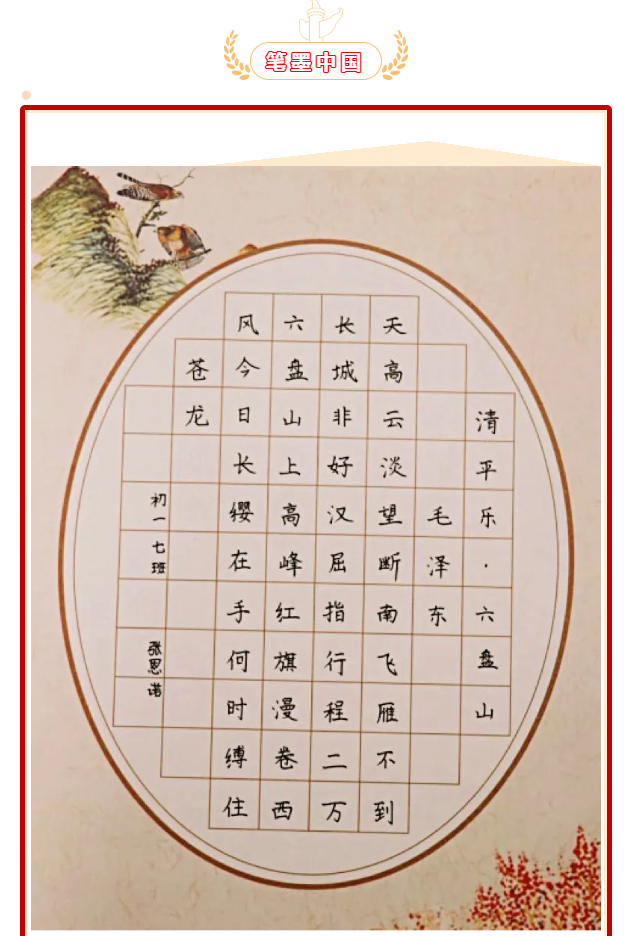 笔墨中国
清平乐·六盘山
毛泽东
天高云淡望断南飞雁不到
长城非好汉屈指行程二万
六盘山上高峰红旗漫卷西
风今日长缨在手何时缚住
苍龙
初一七班 张思诺